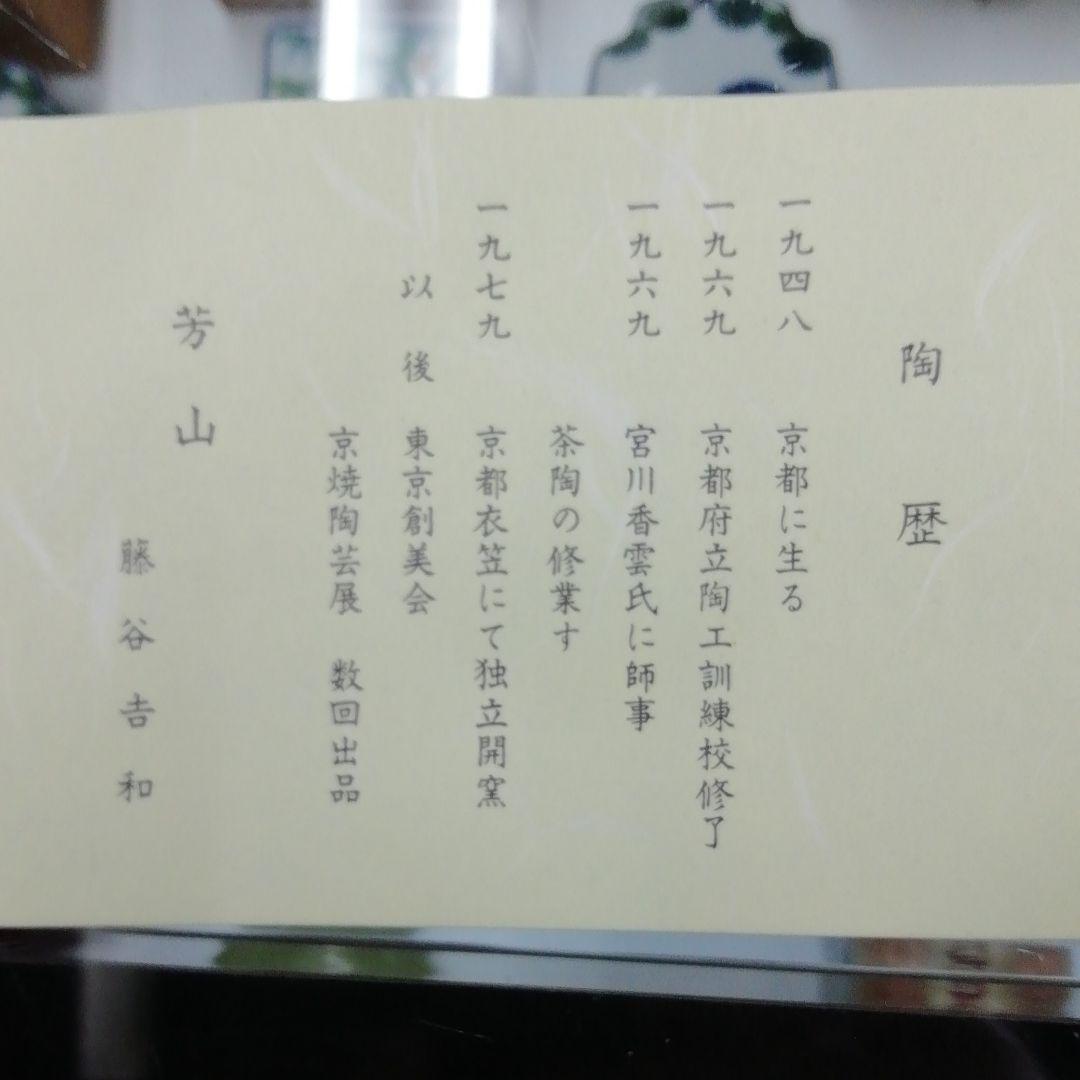 陶歴
一九四八 京都に生る
一九六九 京都府立陶工訓練校修了
一九六九 宮川香雲氏に師事
茶陶の修業す
一九七九 京都衣笠にて独立開窯
以後 東京創美会
京焼陶芸展 数回出品
芳山
藤谷𠮷和